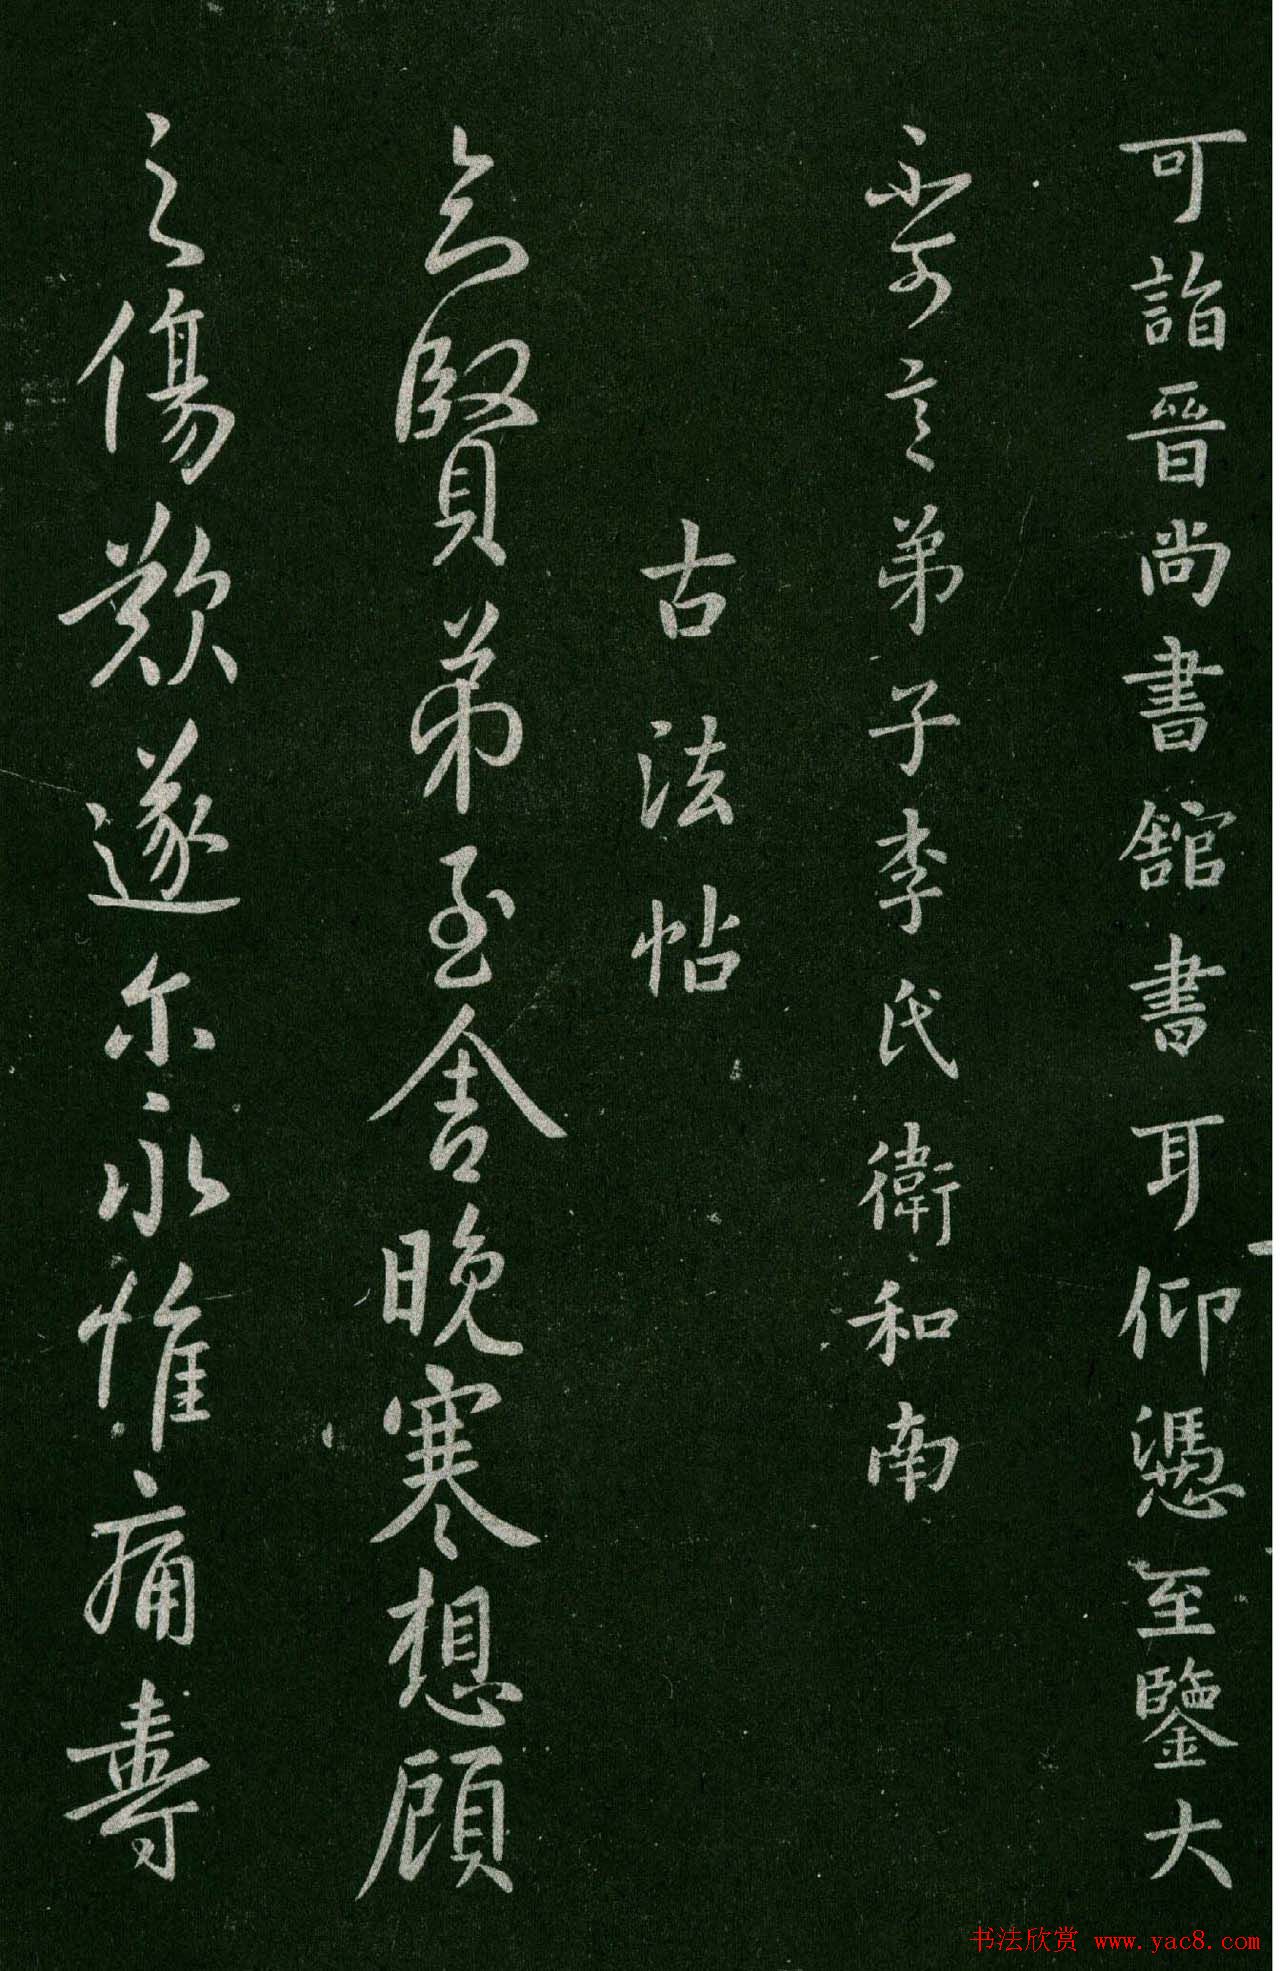 可詣晉尚書舘書耳仰憑至鑒大
不可言弟子李氏衛和南
古法帖
賢弟至舍晚寒想顧
之傷歎遂尔永惟痛壽
书法欣赏 www.yac8.com